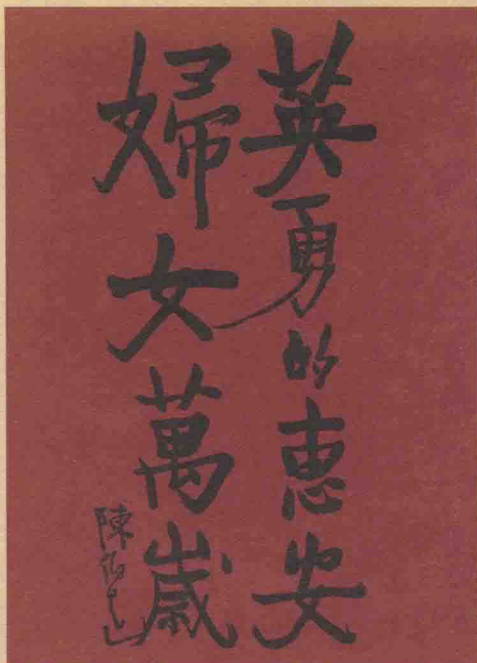 英勇的惠安
婦女萬歲
陳